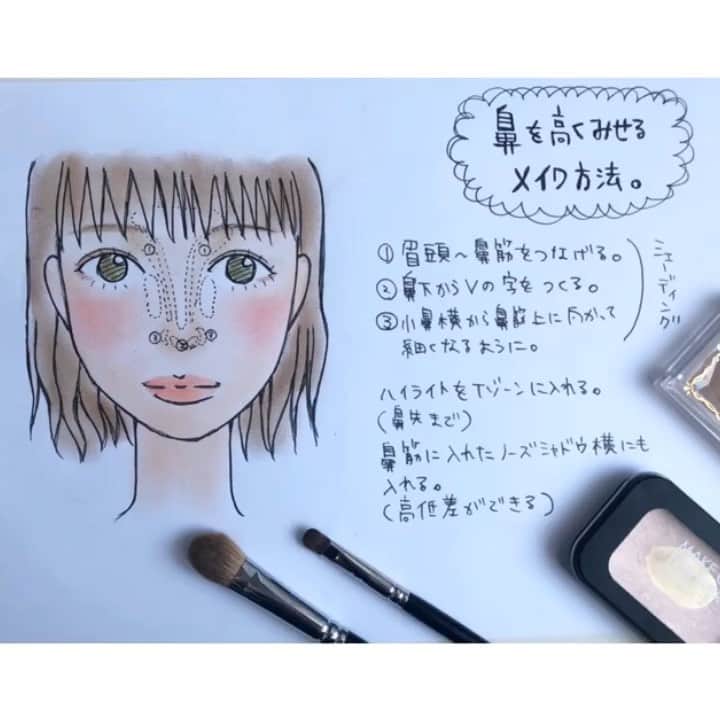 鼻を高くみせる
メイク方法。
① 眉頭〜鼻筋をつなげる。
② 鼻下からVの字をつくる。
③ 小鼻横から鼻筋上に向かって
細くなるように。
シェーディング
ハイライトをTゾーンに入れる。
(鼻先まで)
鼻筋に入れたノーズシャドウ横にも
入れる。
(高低差ができる)
① ①
③ ② ③
MAKE